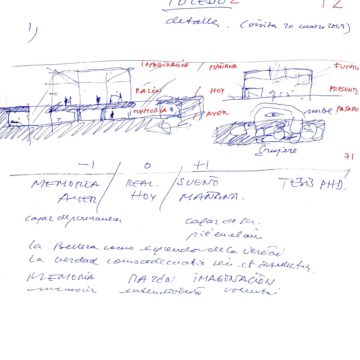 TOLEDO 2
12
detalles. (visita 20 marzo 2009)
1)
IMAGINACIÓN / MAÑANA
FUTURO
RAZÓN / HOY
PRESENTE
MEMORIA / AYER
PASADO
71
-1 / 0 / +1
MEMORIA / REAL. / SUEÑO TESIS PHD.
AYER HOY MAÑANA.
capaz de permanecer
la Belleza como esplendor de la Verdad
La verdad como adecuatio rei et intellectus.
MEMORIA RAZÓN IMAGINACIÓN
memoria entendimiento voluntad